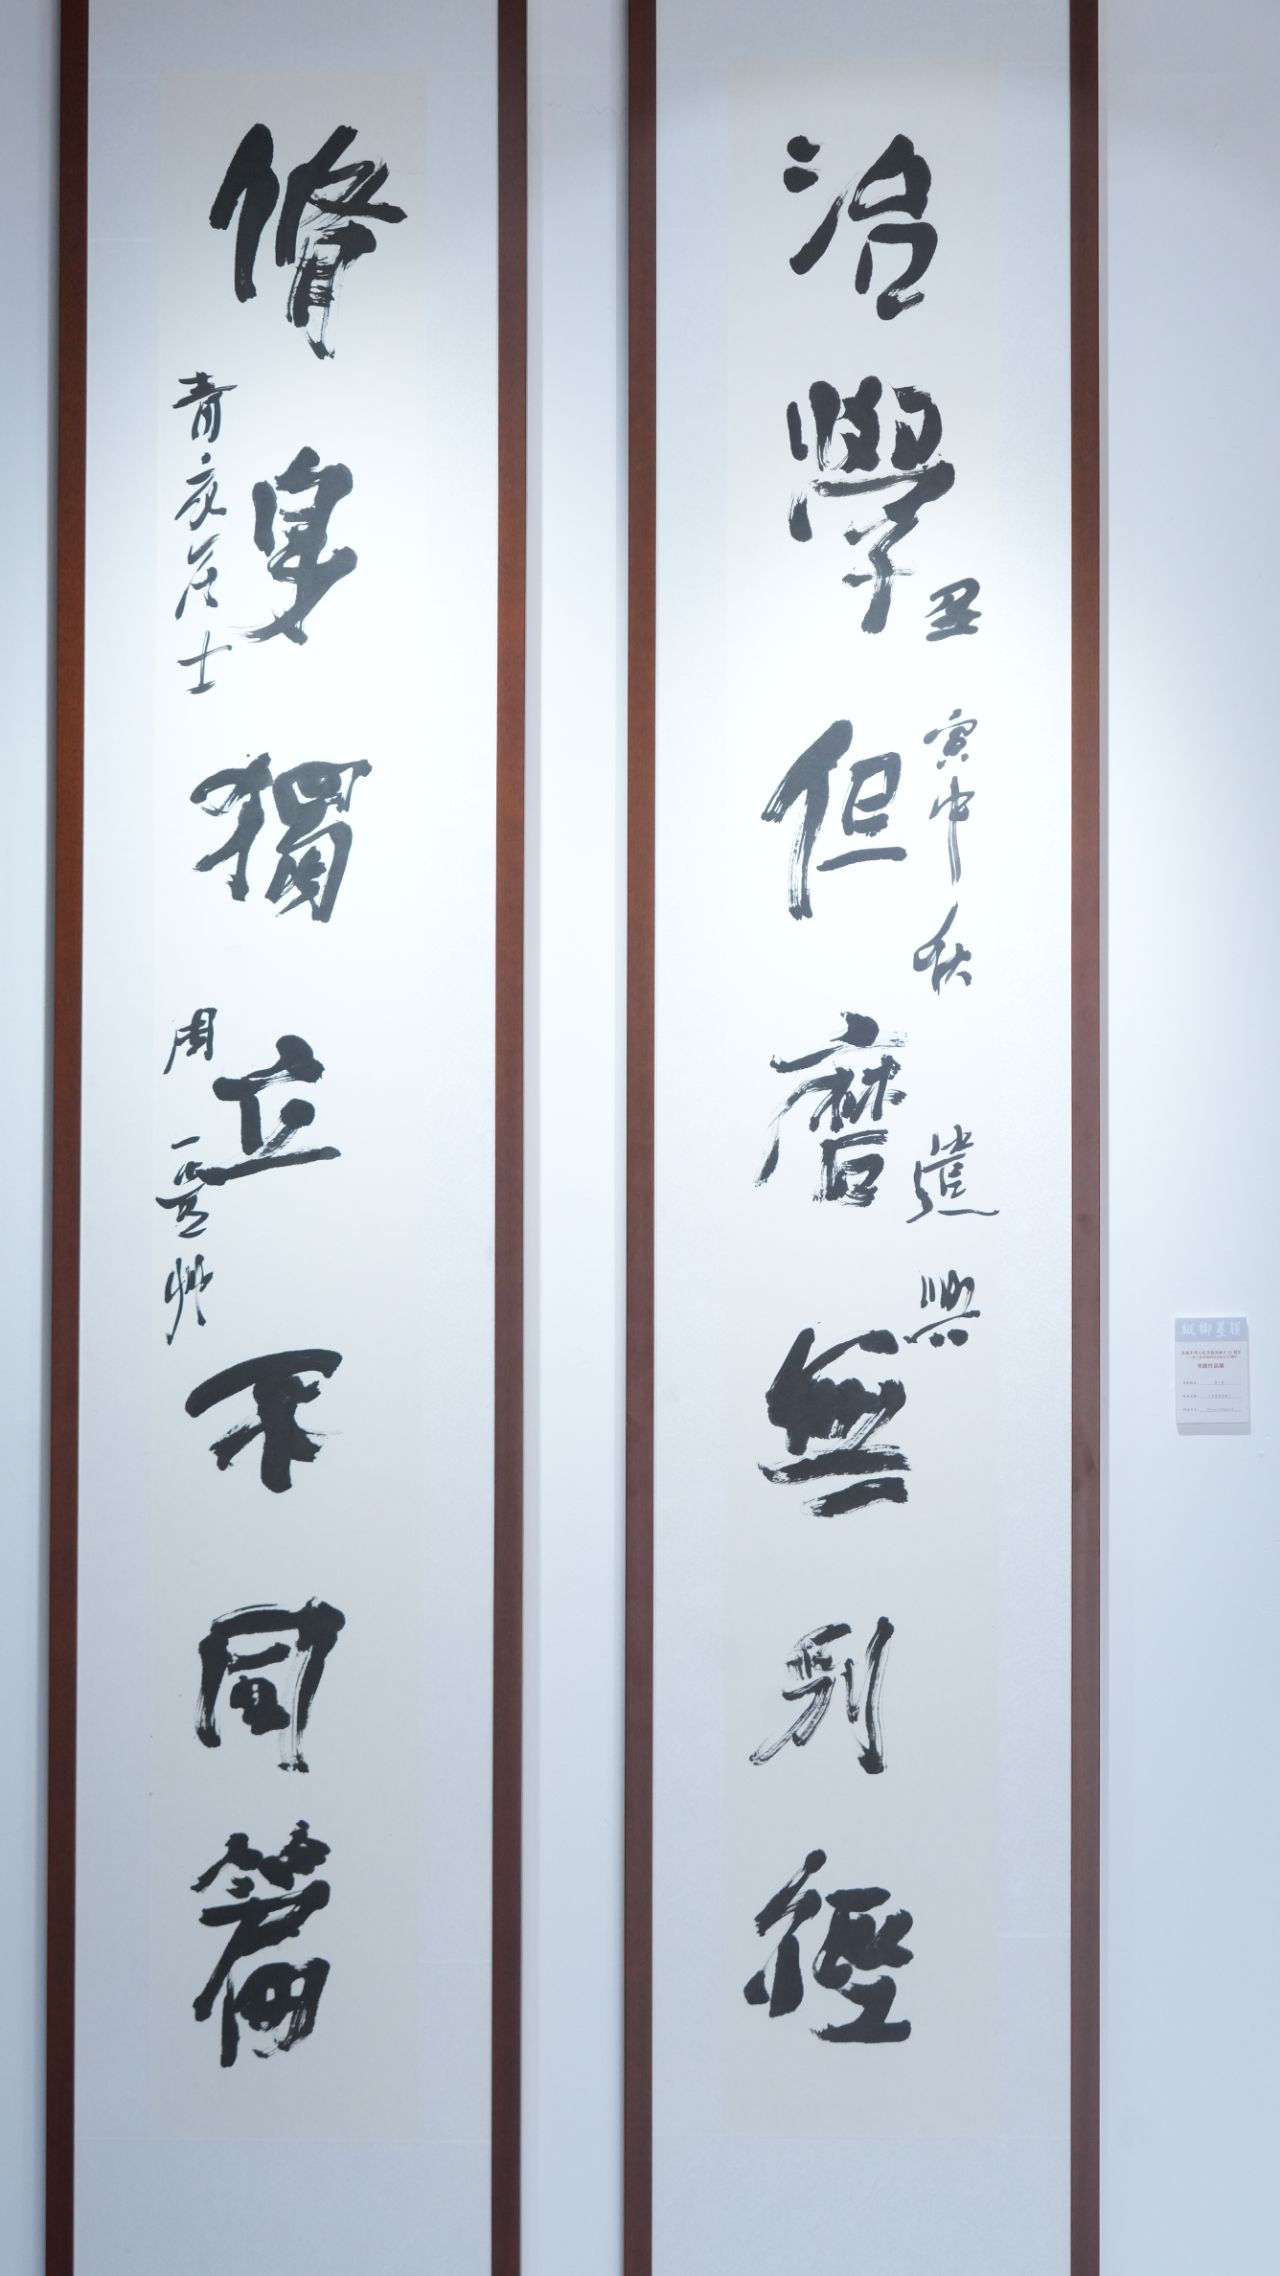 治學但磨無別徑
丑寅中秋
遣興
修身獨立不同篇
青灰居士
周一
艸
紙御墨韻